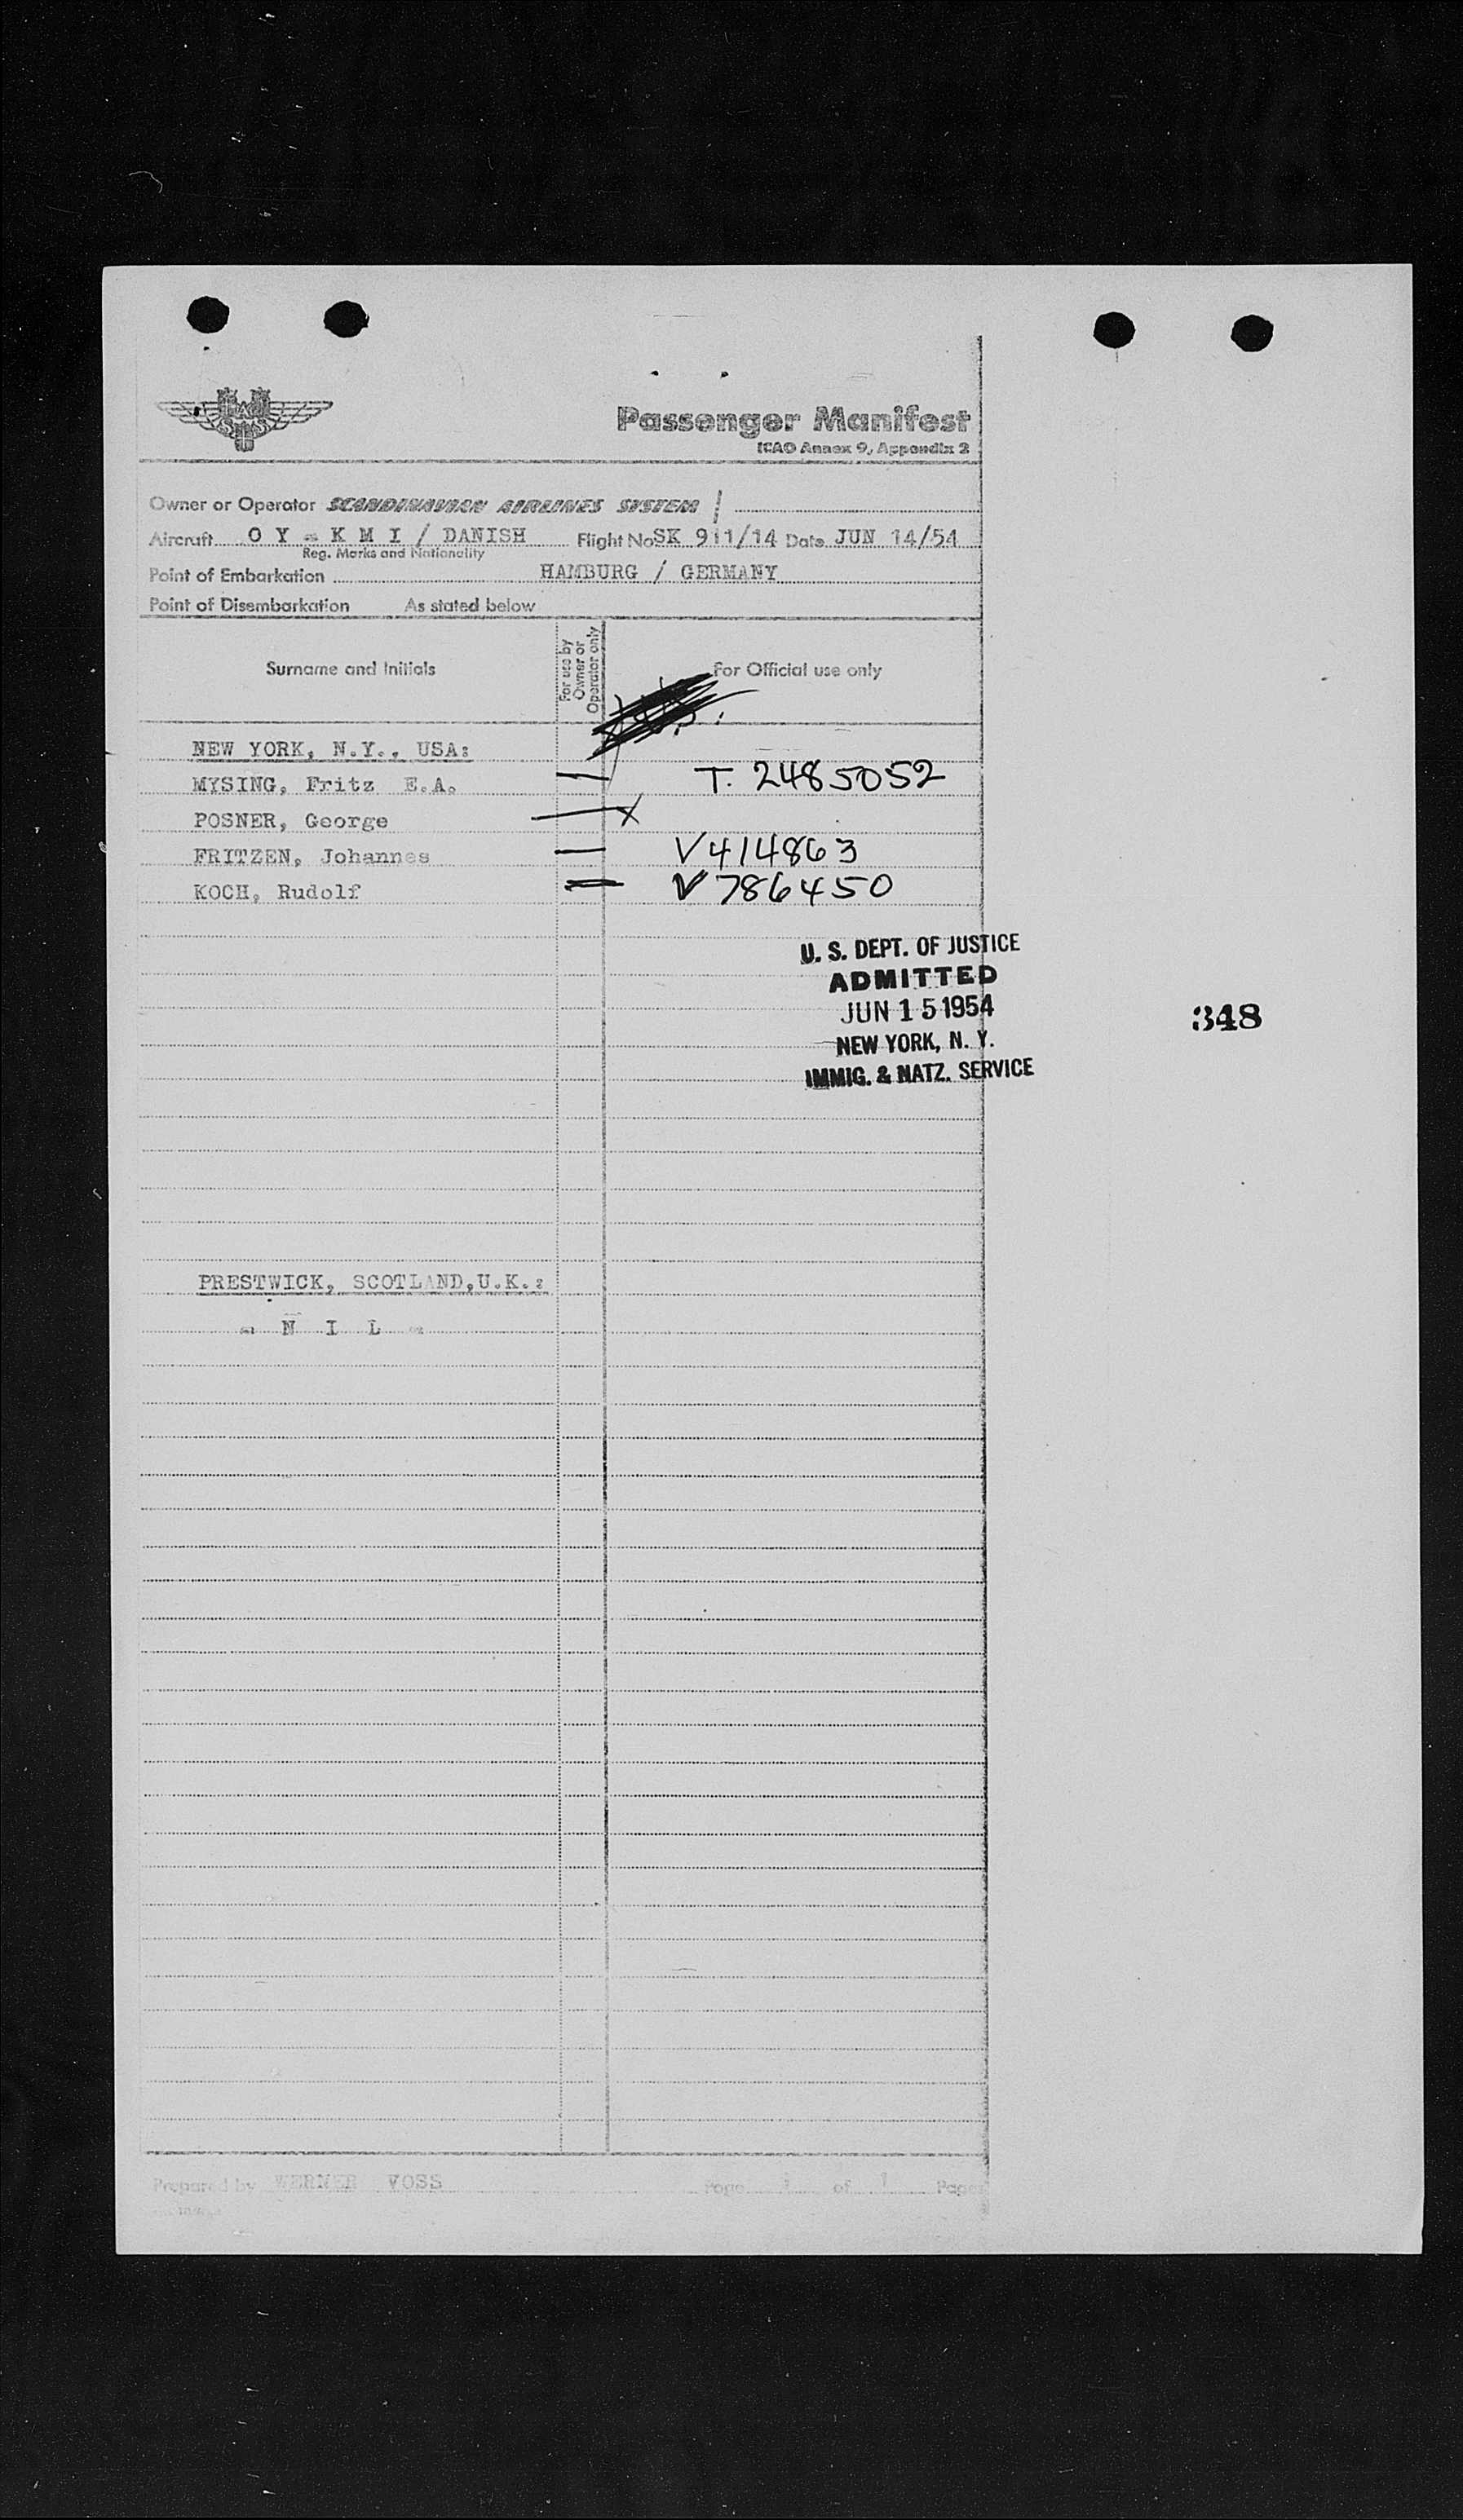 SAS
Passenger Manifest
ICAO Annex 9, Appendix 2
Owner or Operator SCANDINAVIAN AIRLINES SYSTEM /
Aircraft O Y - K M I / DANISH Flight No SK 911/14 Date JUN 14/54
Reg. Marks and Nationality
Point of Embarkation HAMBURG / GERMANY
Point of Disembarkation As stated below
Surname and Initials For use by Owner or Operator only For Official use only
NEW YORK, N.Y., USA:
MYSING, Fritz E.A. T. 2485052
POSNER, George X
FRITZEN, Johannes V414863
KOCH, Rudolf V786450
U. S. DEPT. OF JUSTICE
ADMITTED
JUN 15 1954
348
NEW YORK, N. Y.
IMMIG. & NATZ. SERVICE
PRESTWICK, SCOTLAND,U.K.:
- N I L -
Prepared by WERNER VOSS Page 1 of 1 Pages